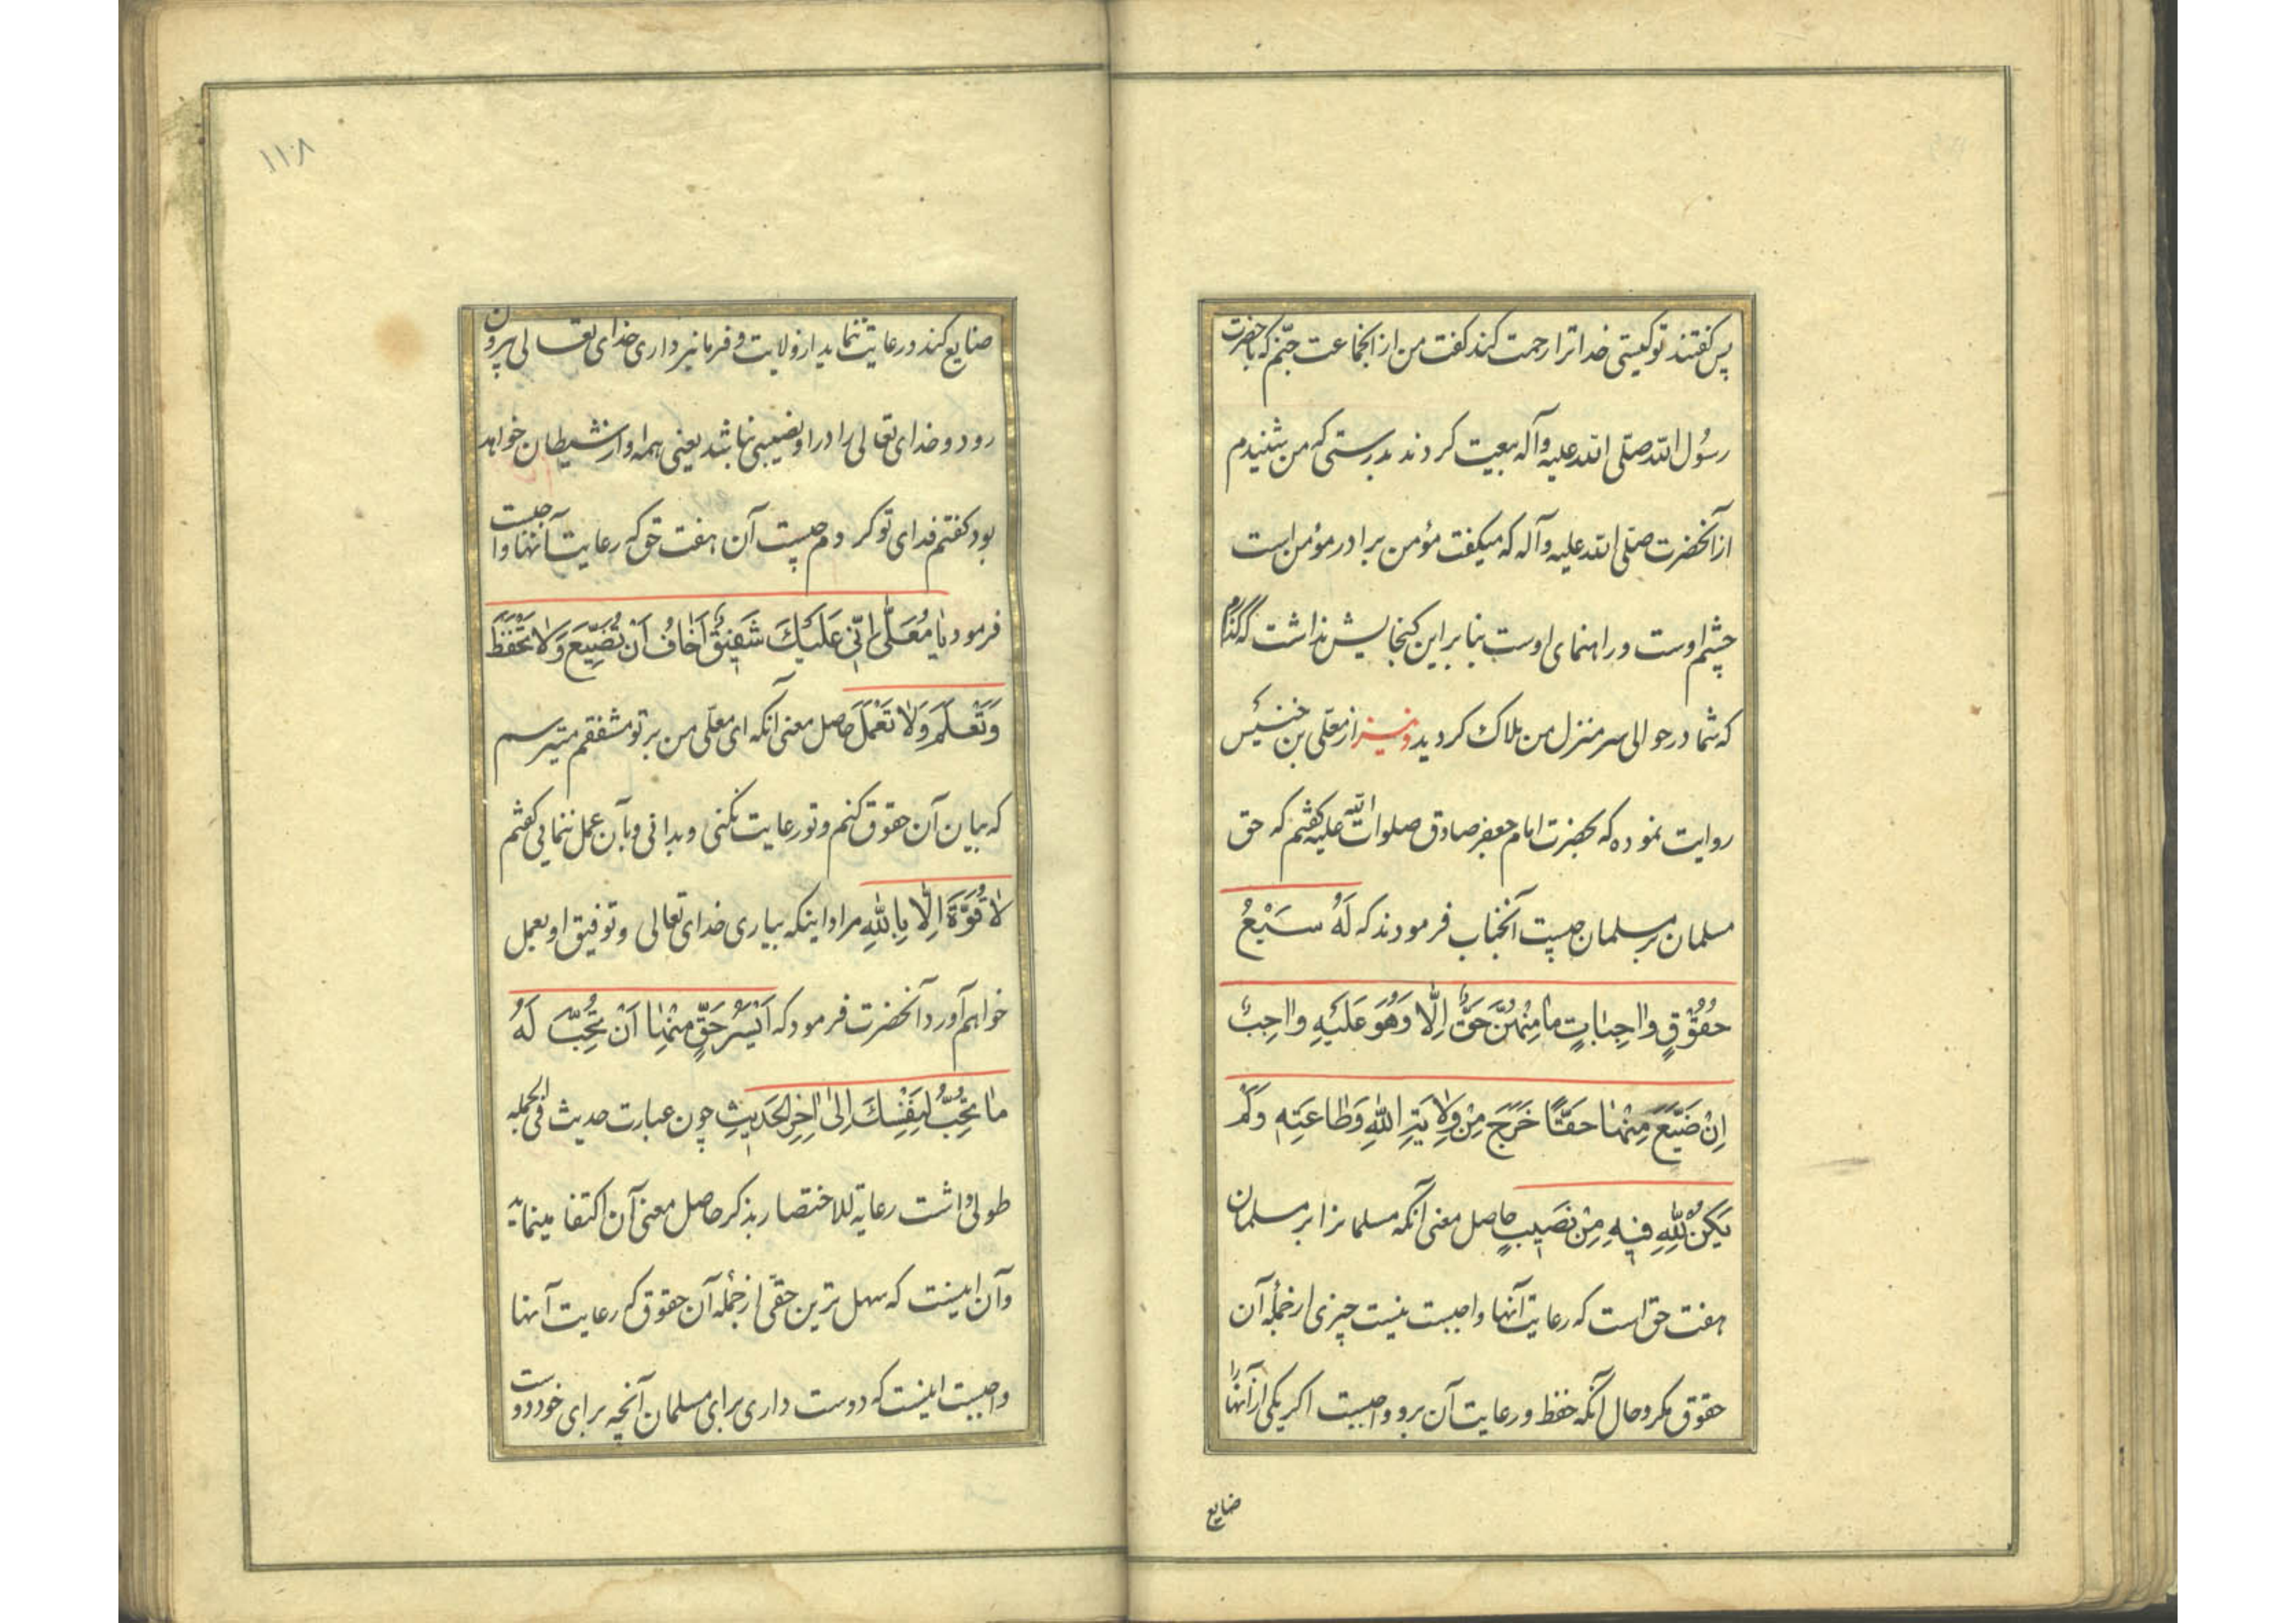 پس گفتند تو کیستی خدا ترا رحمت کند گفت من از انجماعت جنّم که با حضرت
رسُول الله صلّی الله علیه وآله بیعیت کردند بدرستی که من شنیدم
از آنحضرت صلّی الله علیه وآله که میکفت مؤمن برادر مؤمن است
چشم اوست و راهنمای اوست بنابراین کنجایش نداشت که گذارم
که شما در حوالی سر منزل من هلاک کردید و نیز از معلّی بن خنیس
روایت نموده که بحضرت امام جعفر صادق صلوات الله علیه گفتم که حق
مسلمان بر مسلمان چیست آنجناب فرمودند که لَهُ سَبْعُ
حُقُوُقٍ وٰاجِبٰاتٍ مٰا مِنْهُنَّ حَقٌّ اِلّٰا وَهُوَ عَلَیْهِ وٰاجِبٌ
اِنْ ضَیَّعَ مِنْهٰا حَقًّا خَرَجَ مِنْ وِلٰایَةِ اللّٰهِ وَطٰاعَتِهِ وَلَمْ
یَکُنْ لِلّٰهِ فیٖهِ مِنْ نَصیٖبٍ حاصل معنی آنکه مسلمانرا بر مسلمان
هفت حق است که رعایت آنها واجبست نیست چیزی از جمله آن
حقوق مکر و حال آنکه حفظ و رعایت آن برو واجبست اکر یکی از آنها را
ضایع
١١٠٨
ضایع کند و رعایت ننماید از ولایت و فرمانبرداری خدای تعالی بیرون
رود و خدای تعالی را در او نصیبی نباشد یعنی همه او از شیطان خواهد
بود کفتم فدای تو کردم چیست آن هفت حق که رعایت آنها واجبست
فرمود یٰا مُعَلّٰی اِنّیٖ عَلَیْکَ شَفیٖقٌ اَخٰافُ اَنْ تُضَیِّعَ وَلٰا تَحْفَظَ
وَتَعْلَمَ وَلٰا تَعْمَلَ حاصل معنی آنکه ای معلّی من بر تو مشفقم میترسم
که بیان آن حقوق کنم و تو رعایت نکنی و بدانی و بآن عمل ننمایی گفتم
لٰا قُوَّةَ اِلّٰا بِاللّٰهِ مراد اینکه بیاری خدای تعالی و توفیق او بعمل
خواهم آورد آنحضرت فرمود که اَیْسَرُ حَقٍّ مِنْهٰا اَنْ تُحِبَّ لَهُ
مٰا تُحِبُّ لِنَفْسِکَ اِلیٰ اٰخِرِ الحَدیٖثِ چون عبارت حدیث فی الجمله
طولی داشت رعایة للاختصار بذکر حاصل معنی آن اکتفا مینماید
و آن اینست که سهل ترین حقّی از جمله آن حقوق که رعایت آنها
واجبست اینست که دوست داری برای مسلمان آنچه برای خود دوست